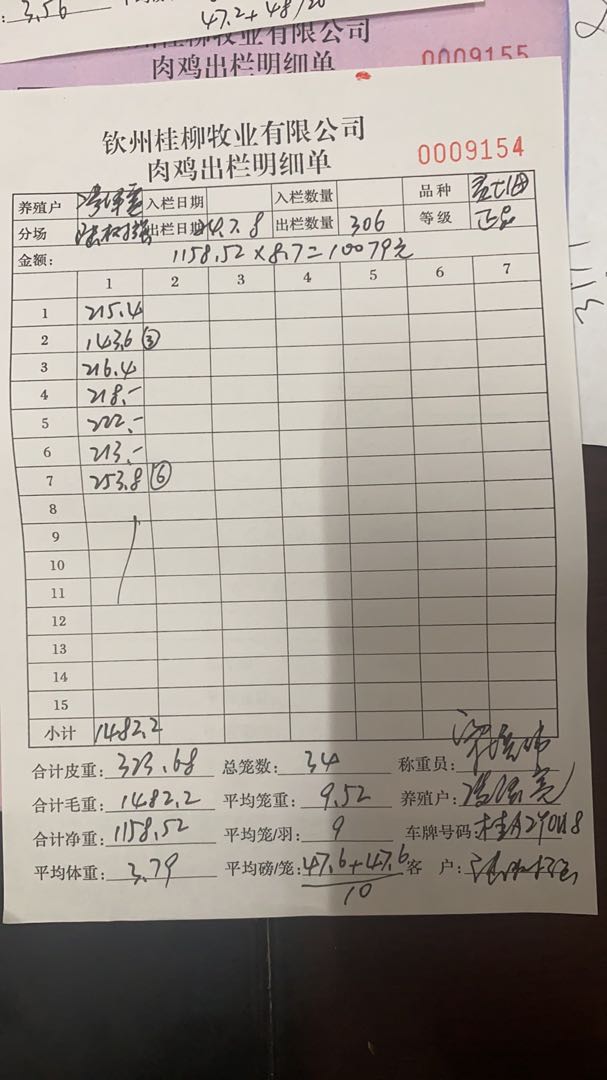 3.56
47.2+48/20
钦州桂柳牧业有限公司
肉鸡出栏明细单 0009155
钦州桂柳牧业有限公司
肉鸡出栏明细单 0009154
养殖户 入栏日期 入栏数量 品种
分场 出栏日期 24.7.8 出栏数量 306 等级 正品
金额: 1158.52×8.7=10079元
1 2 3 4 5 6 7
1 215.4
2 143.6 ③
3 216.4
4 218.-
5 222.-
6 213.-
7 253.8 ⑥
8
9
10
11
12
13
14
15
小计 1482.2
合计皮重: 323.68 总笼数: 34 称重员:
合计毛重: 1482.2 平均笼重: 9.52 养殖户:
合计净重: 1158.52 平均笼/羽: 9 车牌号码:
平均体重: 3.79 平均磅/笼: 47.6+47.6/10 客 户: